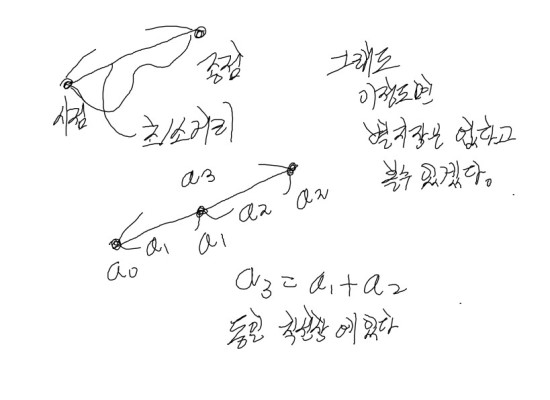 종점
시점
최소거리
그래도
이정도면
별지장은 없다고
볼수 있겠다。
a3
a2
a2
a1
a1
a0
a3 = a1 + a2
동일 직선상에 있다